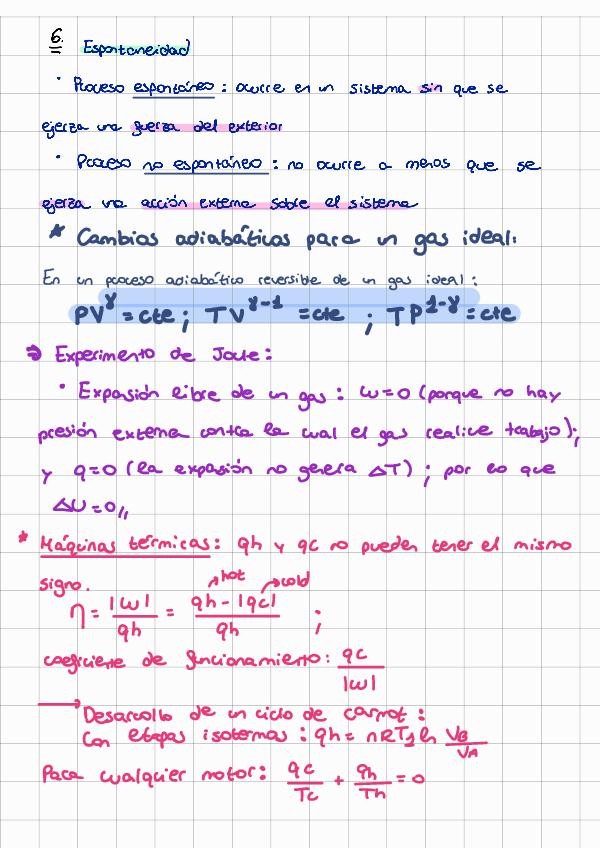 6. Espontaneidad
· Proceso espontáneo: ocurre en un sistema sin que se
ejerza una fuerza del exterior
· Proceso no espontáneo: no ocurre a menos que se
ejerza una acción externa sobre el sistema
* Cambios adiabáticos para un gas ideal:
En un proceso adiabático reversible de un gas ideal:
PV^γ = cte; TV^γ-1 = cte ; TP^1-γ = cte
⇒ Experimento de Joule:
· Expansión libre de un gas: w=0 (porque no hay
presión externa contra la cual el gas realice trabajo);
y q=0 (la expansión no genera ΔT); por lo que
ΔU=0,,
* Máquinas térmicas: qh y qc no pueden tener el mismo
signo. ↗hot ↗cold
η = |w|/qh = qh-|qc|/qh ;
coeficiente de funcionamiento: qc/|w|
→ Desarrollo de un ciclo de carnot:
Con etapas isotermas: qh = nRT1 ln VB/VA
Para cualquier motor: qc/Tc + qh/Th = 0